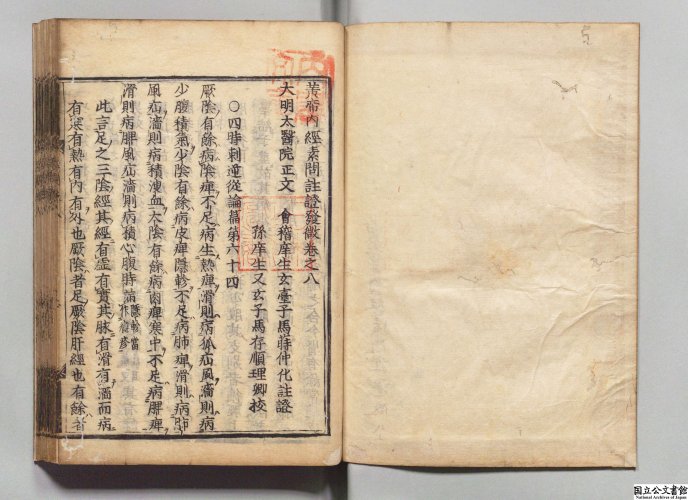 黃帝內經素問註證發微卷之八
大明太醫院正文 會稽庠生玄臺子馬蒔仲化註證
孫庠生又玄子馬存順理卿挍
○四時刺逆從論篇第六十四
厥陰有餘病陰痺不足病生熱痺滑則病狐疝風濇則病
少腹積氣少陰有餘病皮痺隱軫不足病肺痺滑則病肺
風疝濇則病積溲血太陰有餘病肉痺寒中不足病脾痺
滑則病脾風疝濇則病積心腹時滿 隱軫當作癮疹
此言足之三陰經其經有虛有實其脉有滑有濇而病
有寒有熱有內有外也厥陰者足厥陰肝經也有餘者
国立公文書館
National Archives of Japan